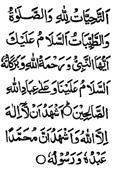 اَلتَّحِيَّاتُ لِلّٰهِ وَالصَّلَوٰةُ
وَالطَّيِّبَاتُ اَلسَّلَامُ عَلَيْكَ
اَيُّهَا النَّبِيُّ وَرَحْمَةُ اللّٰهِ وَبَرَكَاتُهُ
اَلسَّلَامُ عَلَيْنَا وَعَلٰى عِبَادِ اللّٰهِ
الصَّالِحِيْنَ اَشْهَدُ اَنْ لَّا اِلٰهَ
اِلَّا اللّٰهُ وَاَشْهَدُ اَنَّ مُحَمَّدًا
عَبْدُهُ وَرَسُوْلُهُ